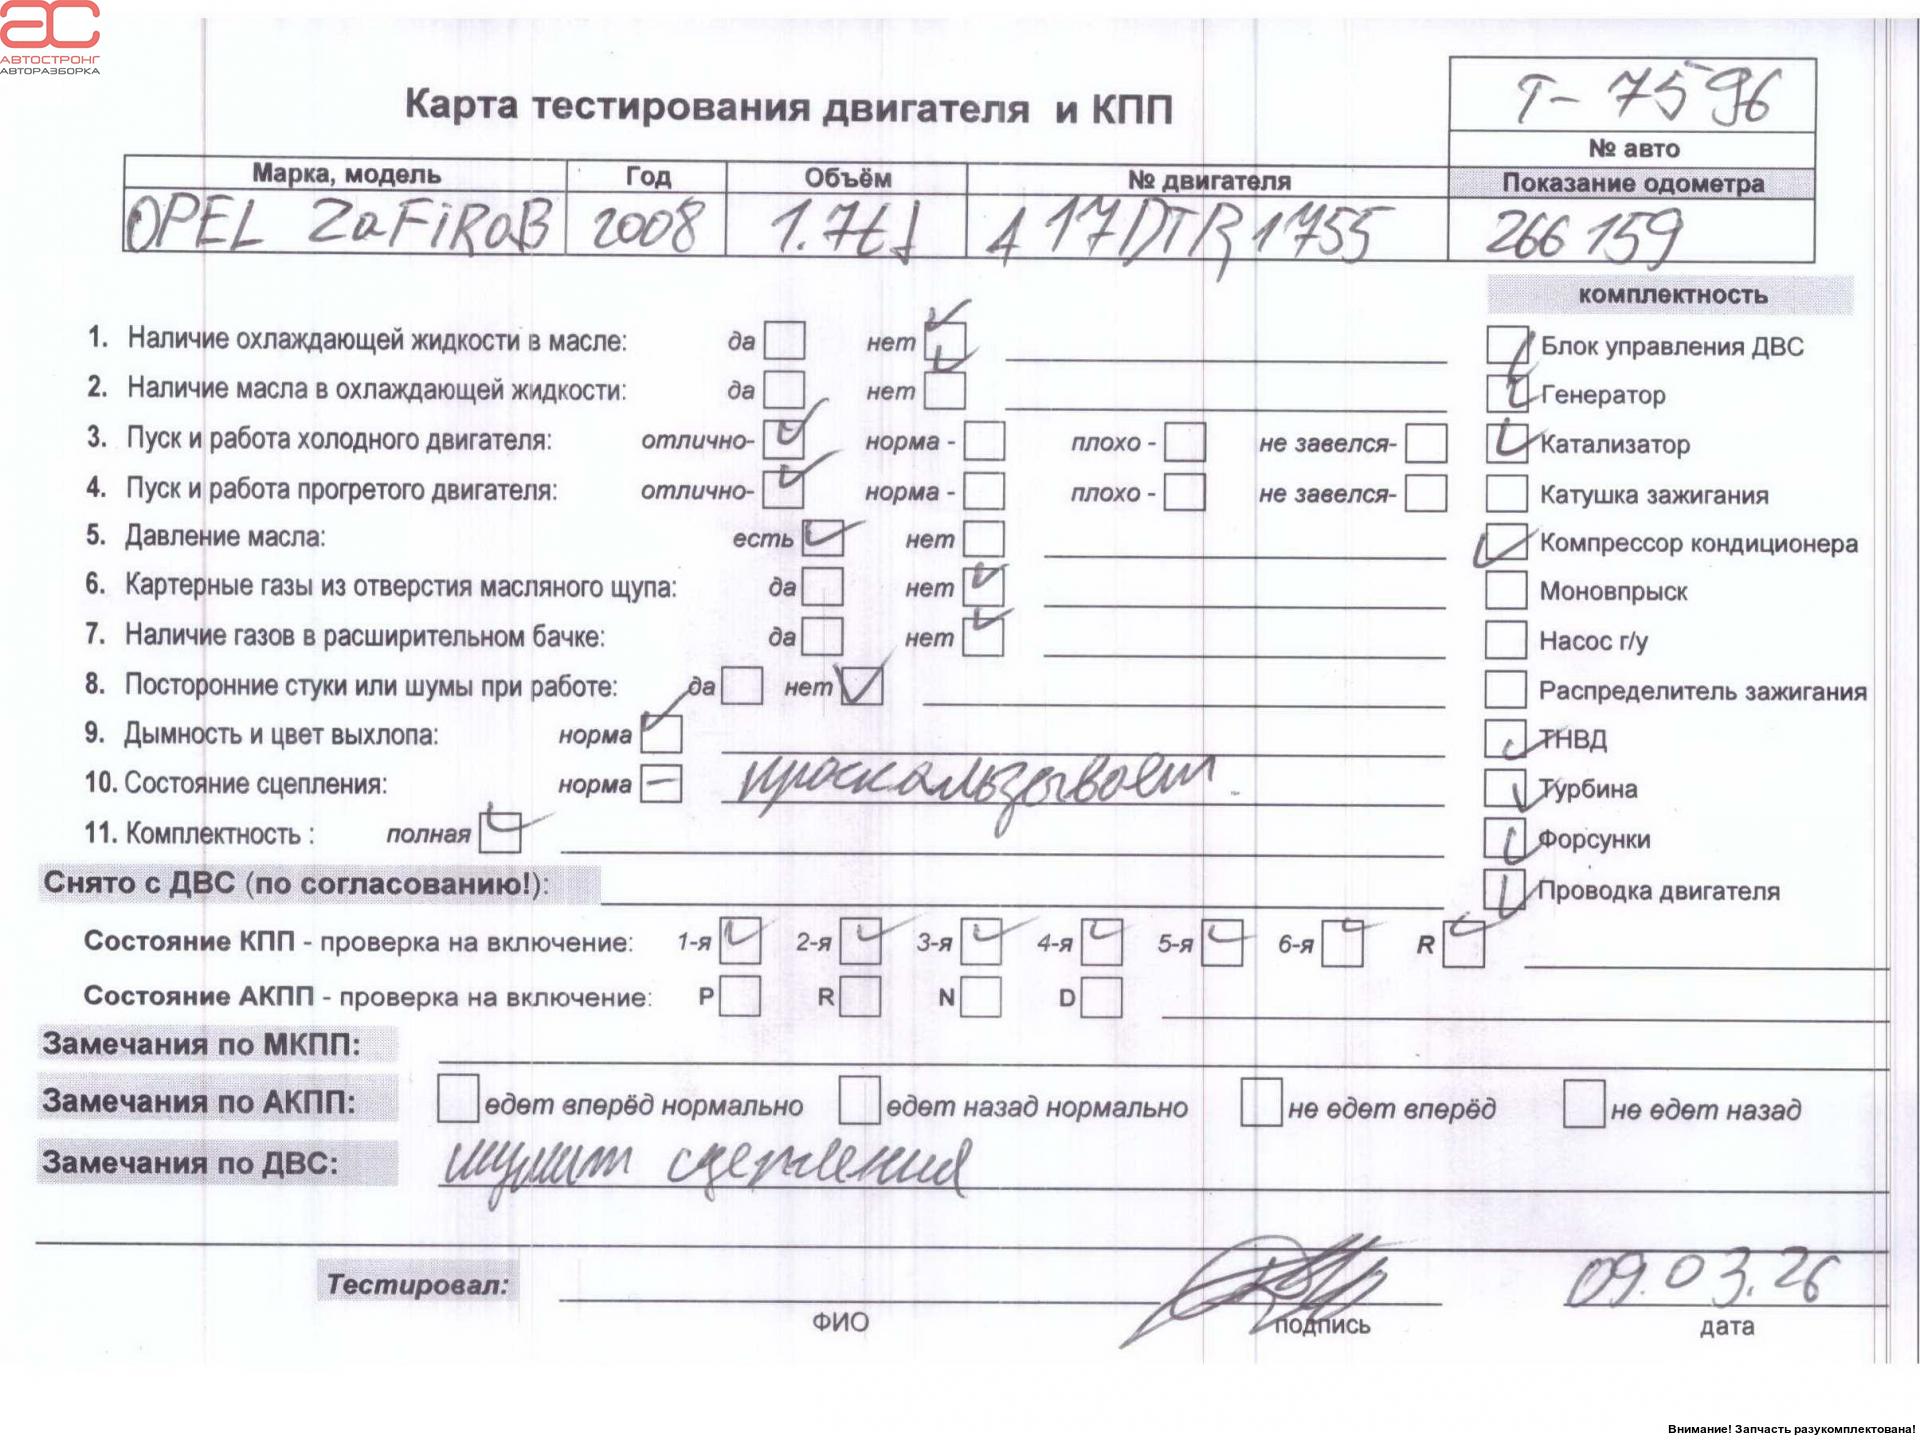 АС
АВТОСТРОНГ
АВТОРАЗБОРКА
Т- 7596
Карта тестирования двигателя и КПП
№ авто
Марка, модель Год Объём № двигателя Показание одометра
OPEL ZaFiRaB 2008 1.7td A 17DTR 1755 266 159
комплектность
1. Наличие охлаждающей жидкости в масле: да нет
Блок управления ДВС
2. Наличие масла в охлаждающей жидкости: да нет
Генератор
3. Пуск и работа холодного двигателя: отлично- норма - плохо - не завелся-
Катализатор
4. Пуск и работа прогретого двигателя: отлично- норма - плохо - не завелся-
Катушка зажигания
5. Давление масла: есть нет
Компрессор кондиционера
6. Картерные газы из отверстия масляного щупа: да нет
Моновпрыск
7. Наличие газов в расширительном бачке: да нет
Насос г/у
8. Посторонние стуки или шумы при работе: да нет
Распределитель зажигания
9. Дымность и цвет выхлопа: норма
ТНВД
10. Состояние сцепления: норма — проскальзывает
Турбина
11. Комплектность : полная
Форсунки
Снято с ДВС (по согласованию!):
Проводка двигателя
Состояние КПП - проверка на включение: 1-я 2-я 3-я 4-я 5-я 6-я R
Состояние АКПП - проверка на включение: P R N D
Замечания по МКПП:
Замечания по АКПП: едет вперёд нормально едет назад нормально не едет вперёд не едет назад
Замечания по ДВС: шумит сцепления
Тестировал: 09.03.26
ФИО подпись дата
Внимание! Запчасть разукомплектована!